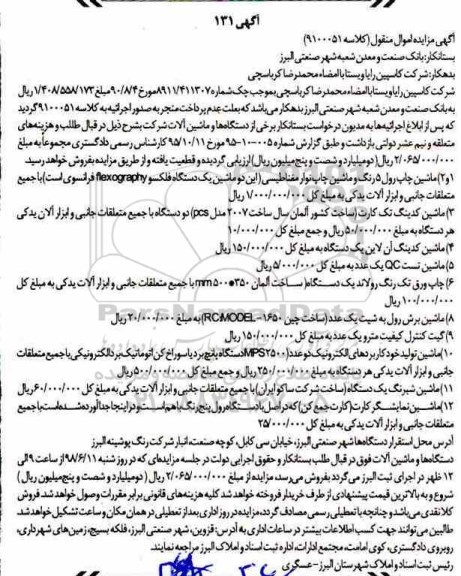 آگهی ۱۳۱
آگهی مزایده اموال منقول (کلاسه ۹۱۰۰۰۵۱)
بستانکار: بانک صنعت و معدن شعبه شهر صنعتی البرز
بدهکار: شرکت کاسپین رایا ویستا با امضاء محمدرضا کرباسچی
شرکت کاسپین رایا ویستا با امضاء محمدرضا کرباسچی بموجب چک شماره ۸۹۱۱/۴۱۱۳۰۷ مورخ ۹۰/۸/۴ مبلغ ۱/۴۰۸/۵۵۸/۱۷۳ ریال
به بانک صنعت و معدن شهر صنعتی البرز بدهکار می باشد که بعلت عدم پرداخت منجر به صدور اجرائیه به کلاسه ۹۱۰۰۰۵۱ گردید
که پس از ابلاغ اجرائیه ها به مدیون درخواست بستانکار برخی از دستگاه ها و ماشین آلات شرکت بشرح ذیل در قبال طلب و هزینه های
متعلقه و نیم عشر دولتی بازداشت و طبق گزارش شماره ۰۰۵-۱۰-۹۵ مورخ ۹۵/۱۰/۱۱ کارشناس رسمی دادگستری مجموعاً به مبلغ
۲/۰۶۵/۰۰۰/۰۰۰ ریال (دو میلیارد و شصت و پنج میلیون ریال) ارزیابی گردیده و قطعیت یافته و از طریق مزایده بفروش خواهد رسید.
۱و۲) ماشین چاپ رول ۵ رنگ و ماشین چاپ نوار مغناطیسی (این دو ماشین یک دستگاه فلکسو flexography فرانسوی است) با جمیع
متعلقات جانبی و ابزار آلات یدکی به مبلغ کل ۱/۰۰۰/۰۰۰/۰۰۰ ریال
۳) ماشین کدینگ تک کارت (ساخت کشور آلمان سال ساخت ۲۰۰۷ مدل pcs) دو دستگاه با جمیع متعلقات جانبی و ابزار آلات یدکی
هر دستگاه به مبلغ ۵۰/۰۰۰/۰۰۰ ریال و جمع مبلغ کل ۱۰/۰۰۰/۰۰۰
۴) ماشین کدینگ آن لاین یک دستگاه به مبلغ کل ۱۵۰/۰۰۰/۰۰۰ ریال
۵) ماشین تست QC یک عدد به مبلغ کل ۵/۰۰۰/۰۰۰ ریال
۶) چاپ ورق تک رنگ رولاند یک دستگاه (ساخت آلمان ۳۵۰*۵۰۰ mm با جمیع متعلقات جانبی و ابزار آلات یدکی به مبلغ کل
۱۰۰/۰۰۰/۰۰۰ ریال
۸) ماشین برش رول به شیت یک عدد (ساخت چین RC:MODEL-۱۶۵۰) به مبلغ ۲۰/۰۰۰/۰۰۰ ریال
۹) گیت کنترل کیفیت مترو یک عدد به مبلغ کل ۱۵۰/۰۰۰/۰۰۰ ریال
۱۰) ماشین تولید خودکار بردهای الکترونیک دو عدد (MPS۲۵۰۰ دستگاه پانچ برد یا سوراخ کن اتوماتیک برد الکترونیکی با جمیع متعلقات
جانبی و ابزار آلات یدکی هر دستگاه به مبلغ ۲۵۰/۰۰۰/۰۰۰ ریال و جمع مبلغ کل ۵۰۰/۰۰۰/۰۰۰ ریال
۱۱) ماشین شیرنگ یک دستگاه (ساخت شرکت ساکو ایران) با جمیع متعلقات جانبی و ابزار آلات یدکی به مبلغ کل ۶۰/۰۰۰/۰۰۰ ریال
۱۲) ماشین نمایشگر کارت (کارت جمع کن) که در اصل با دستگاه رول پنج رنگ با هم است و در اینجا جدا آورده شده است با جمیع
متعلقات جانبی و ابزار آلات یدکی به مبلغ کل ۲۵/۰۰۰/۰۰۰
آدرس محل استقرار دستگاه ها شهر صنعتی البرز، خیابان سی کابل، کوچه صنعت، انبار شرکت رنگ پوشینه البرز
دستگاه ها و ماشین آلات فوق در قبال طلب بستانکار و حقوق اجرایی دولت در جلسه مزایده ای که در روز شنبه ۹۸/۶/۱۱ از ساعت ۹ الی
۱۲ ظهر در اجرای ثبت البرز می گردد بفروش می رسد. مزایده از مبلغ ۲/۰۶۵/۰۰۰/۰۰۰ ریال (دو میلیارد و شصت و پنج میلیون ریال)
شروع و به بالاترین قیمت پیشنهادی از طرف خریدار فروخته خواهد شد کلیه هزینه های قانونی برابر مقررات وصول خواهد شد. فروش
کلاً نقدی می باشد و چنانچه با تعطیلی رسمی مصادف گردد، مزایده در روز اداری بعد از تعطیلی در همان مکان و ساعت تشکیل خواهد شد.
طالبین می توانند جهت کسب اطلاعات بیشتر در ساعات اداری به آدرس: قزوین، شهر صنعتی البرز، فلکه بسیج، زمین های شهرداری،
روبروی دادگستری، کوی امامت، مجتمع ادارات، اداره ثبت اسناد و املاک البرز مراجعه نمایند.
رئیس ثبت اسناد و املاک شهرستان البرز - عسگری